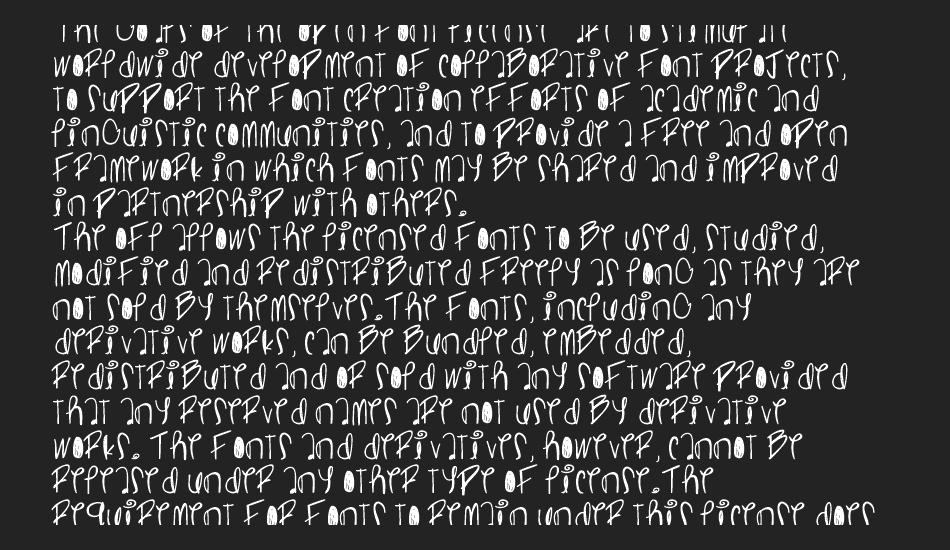 The goals of the Open Font License are to stimulate
worldwide development of collaborative font projects,
to support the font creation efforts of academic and
linguistic communities, and to provide a free and open
framework in which fonts may be shared and improved
in partnership with others.
The OFL allows the licensed fonts to be used, studied,
modified and redistributed freely as long as they are
not sold by themselves. The fonts, including any
derivative works, can be bundled, embedded,
redistributed and or sold with any software provided
that any reserved names are not used by derivative
works. The fonts and derivatives, however, cannot be
released under any other type of license. The
requirement for fonts to remain under this license does